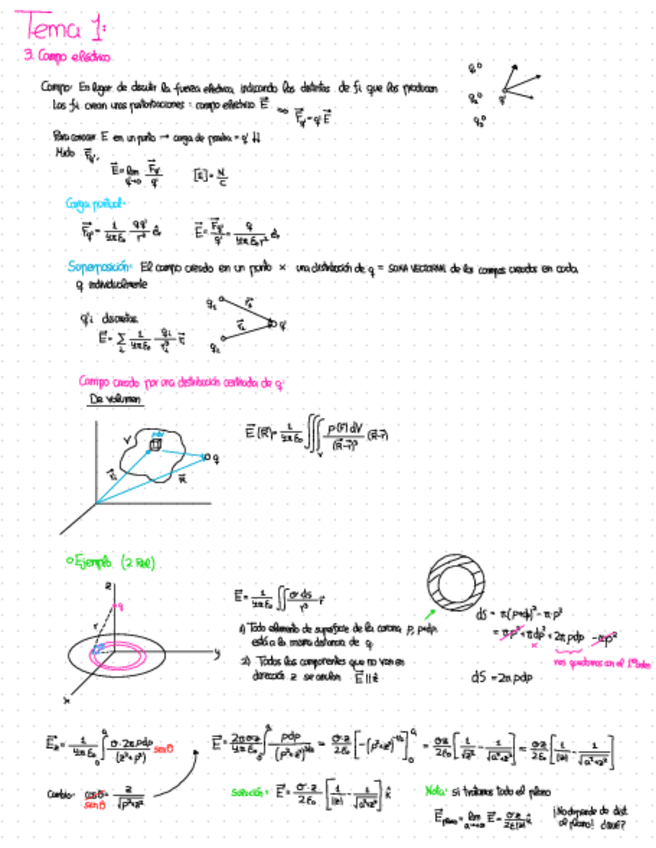 Tema 1:
3. Campo eléctrico
Campo: En lugar de discutir la fuerza eléctrica, indicando las distintas de fi que las producen
Las fi crean unas perturbaciones = campo eléctrico E⃗ ⇒ F⃗q' = q' E⃗
q1
q2
q'
q3
Para conocer E en un punto → carga de prueba = q' ↓↓
Mido F⃗q'
E⃗ = lim q'→0 F⃗q'/q' [E] = N/C
Carga puntual:
F⃗q' = 1/4πε₀ qq'/r² êr E⃗ = F⃗q'/q' = q/4πε₀r² êr
Superposición: El campo creado en un punto x una distribución de q = SUMA VECTORIAL de los campos creados en cada
q individualmente
q'i discretas
E⃗ = Σi 1/4πε₀ qi/ri³ r⃗i
q1
q2
q'
Campo creado por una distribución continuada de q:
De volumen
V
q
R⃗
E⃗(R⃗) = 1/4πε₀ ∭V ρ(r⃗)dV/(R⃗-r⃗)³ (R⃗-r⃗)
Ejemplo: (2 Rel)
z
q
r
y
x
E⃗ = 1/4πε₀ ∬ σ ds/r³ r⃗
1) Todo elemento de superficie de la corona ρ, ρ+dρ
está a la misma distancia de q
2) Todas las componentes que no van en
dirección z se anulan E⃗ ∥ ẑ
dS = π(ρ+dρ)² - π·ρ²
= πρ² + πdρ² + 2πρdρ - πρ²
nos quedamos con el 1º orden
dS = 2πρdρ
E⃗z = 1/4πε₀ ∫₀ᵃ σ·2πρdρ/(z²+ρ²) senθ
E⃗ = 2πσz/4πε₀ ∫₀ᵃ ρdρ/(ρ²+z²)^3/2 = σz/2ε₀ [-(ρ²+z²)^-1/2]₀ᵃ = σz/2ε₀ [1/√z² - 1/√a²+z²] = σz/2ε₀ [1/|z| - 1/√a²+z²]
Cambio: cosθ = z/√ρ²+z²
senθ
Solución: E⃗ = σ·z/2ε₀ [1/|z| - 1/√a²+z²] k̂
Nota: si tratamos todo el plano
E⃗plano = lim a→∞ E⃗ = σz/2ε₀|z| k̂
¡No depende de dist.
al plano! ¿Qué?